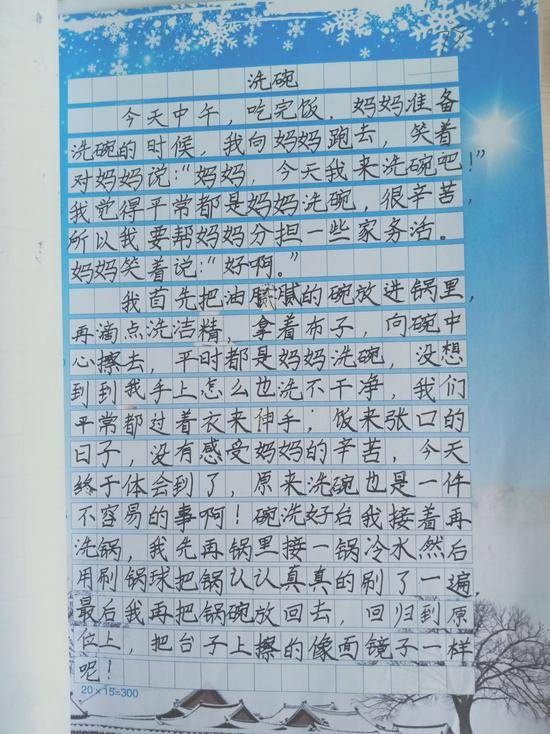 洗碗
今天中午，吃完饭，妈妈准备
洗碗的时候，我向妈妈跑去，笑着
对妈妈说：“妈妈，今天我来洗碗吧！”
我觉得平常都是妈妈洗碗，很辛苦，
所以我要帮妈妈分担一些家务活。
妈妈笑着说：“好啊。”
我首先把油腻腻的碗放进锅里，
再滴点洗洁精，拿着布子，向碗中
心擦去，平时都是妈妈洗碗，没想
到到我手上怎么也洗不干净，我们
平常都过着衣来伸手；饭来张口的
日子，没有感受妈妈的辛苦，今天
终于体会到了，原来洗碗也是一件
不容易的事啊！碗洗好台我接着再
洗锅，我先再锅里接一锅冷水然后
用刷锅球把锅认认真真的刷了一遍，
最后我再把锅碗放回去，回归到原
位上，把台子上擦的像面镜子一样
呢！
20×15=300